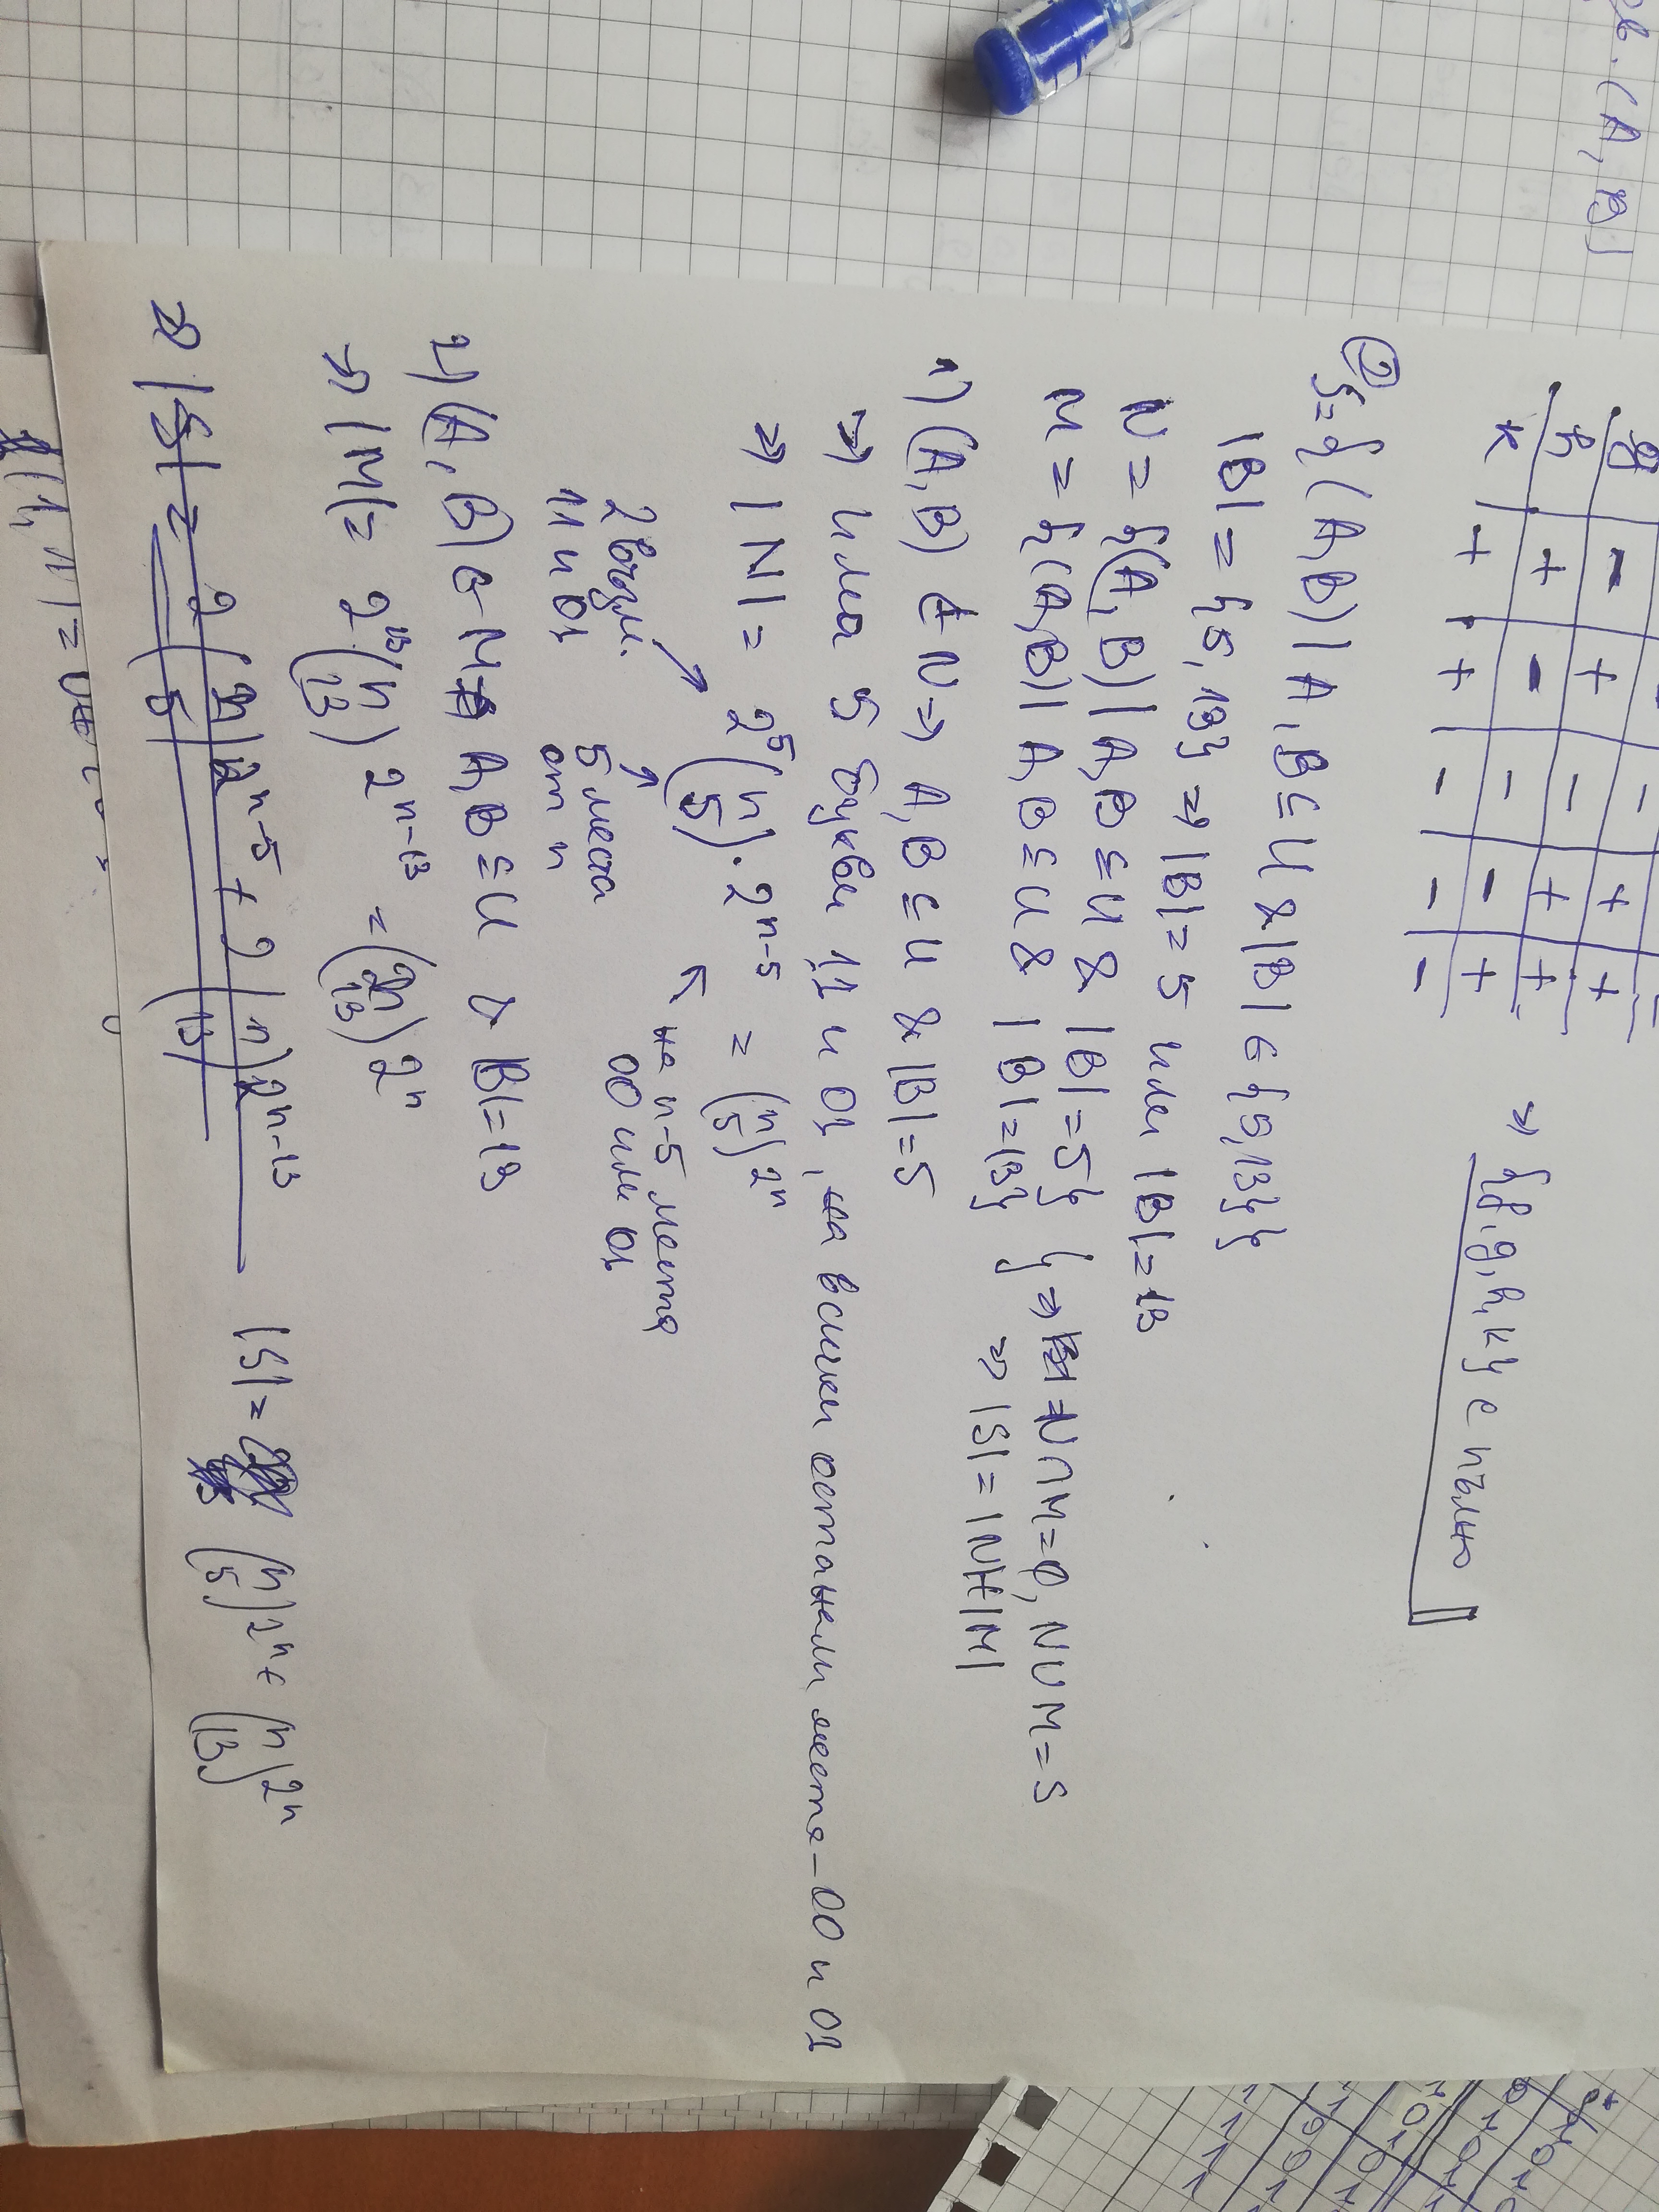 (A, B)
g - + - + +
h + - - + +
k + + - - -
⇒ {f, g, h, k} е пълно
② S = {(A,B) | A, B ⊆ U & |B| ∈ {5,13}}
|B| = {5, 13} ⇒ |B| = 5 или |B| = 13
N = {(A, B) | A,B ⊆ U & |B| = 5}
M = {(A,B) | A,B ⊆ U & |B| = 13}
} ⇒ N∩M=∅, N∪M=S
⇒ |S| = |N|+|M|
1) (A,B) ∈ N ⇒ A,B ⊆ U & |B|=5
⇒ има 5 букви 11 и 01, на всички останали места - 00 и 01
⇒ |N| = 2^5 (n 5) . 2^{n-5} = (n 5) 2^n
2 възм. 11 и 01
5 места от n
на n-5 места 00 или 01
2) (A, B) ∈ M ⇒ A,B ⊆ U & |B|=13
⇒ |M| = 2^13 (n 13) 2^{n-13} = (n 13) 2^n
⇒ |S| = 2 (n 5) 2^{n-5} + 2 (n 13) 2^{n-13}
|S| = (n 5) 2^n + (n 13) 2^n